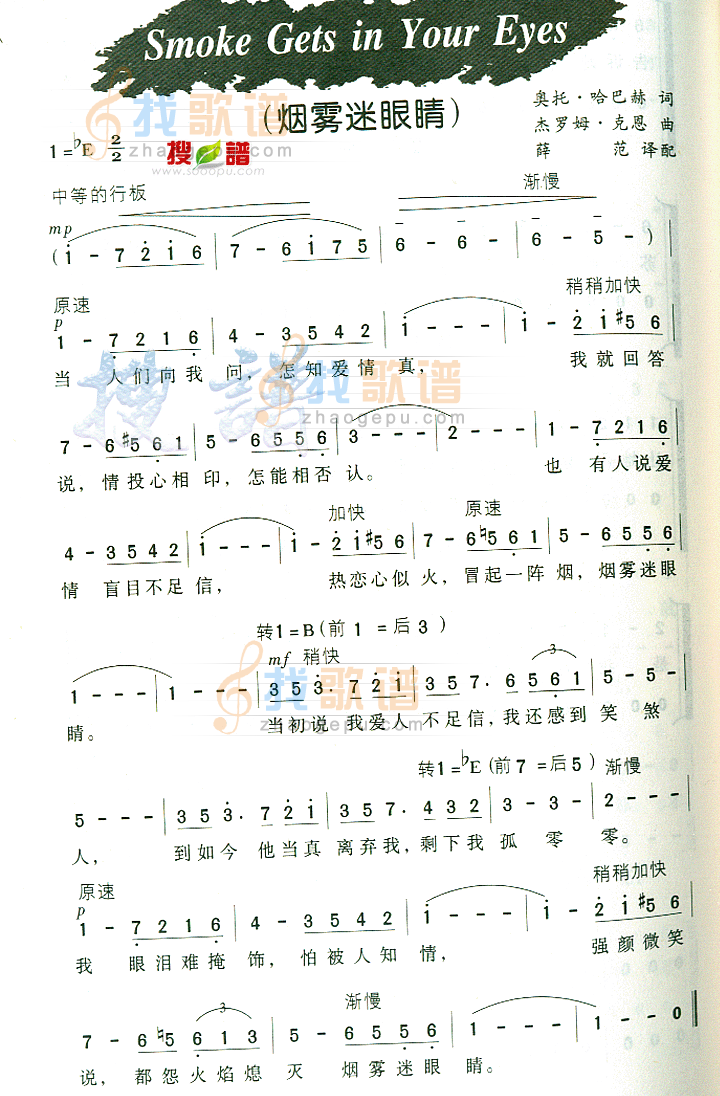 Smoke Gets in Your Eyes
(烟雾迷眼睛)
奥托·哈巴赫 词
杰罗姆·克恩 曲
薛 范 译配
1=♭E 2/2
找歌谱
zhaogepu.com
搜谱
www.sooopu.com
中等的行板
渐慢
mp
(1 - 7 2 1 6 | 7 - 6 1 7 5 | 6 - 6 - | 6 - 5 - )
原速
稍稍加快
p
1 - 7 2 1 6 | 4 - 3 5 4 2 | 1 - - - | 1 - 2 1 #5 6
当 人们向我 问, 怎知爱情 真, 我就回答
找歌谱
zhaogepu.com
7 - 6 #5 6 1 | 5 - 6 5 5 6 | 3 - - - | 2 - - - | 1 - 7 2 1 6
说, 情投心相 印, 怎能相否 认。 也 有人说爱
加快 原速
4 - 3 5 4 2 | 1 - - - | 1 - 2 1 #5 6 | 7 - 6 ♮5 6 1 | 5 - 6 5 5 6
情 盲目不足 信, 热恋心似 火, 冒起一阵 烟, 烟雾迷眼
转1=B (前 1 = 后 3 )
mf 稍快
1 - - - | 1 - - - | 3 5 3. 7 2 1 | 3 5 7. 6 5 6 1 | 5 - 5 -
睛。 当初说 我爱人 不足信, 我还感到 笑 煞
找歌谱
zhaogepu.com
转1=♭E (前 7 = 后 5 ) 渐慢
5 - - - | 3 5 3. 7 2 1 | 3 5 7. 4 3 2 | 3 - 3 - | 2 - - -
人, 到如今 他当真 离弃我, 剩下我 孤 零 零。
原速
稍稍加快
p
1 - 7 2 1 6 | 4 - 3 5 4 2 | 1 - - - | 1 - 2 1 #5 6
我 眼泪难掩 饰, 怕被人知 情, 强颜微笑
渐慢
7 - 6 ♮5 6 1 3 | 5 - 6 5 5 6 | 1 - - - | 1 - - 0
说, 都怨火焰熄 灭 烟雾迷眼 睛。